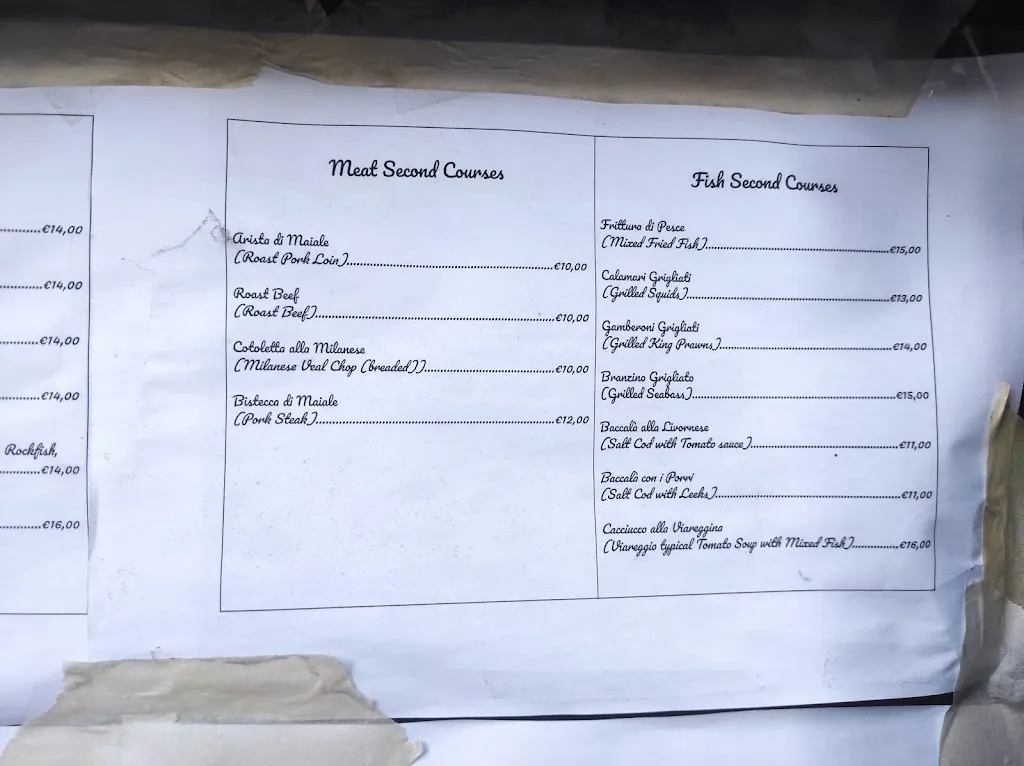 ..........€14,00
..........€14,00
..........€14,00
..........€14,00
Rockfish,
..........€14,00
..........€16,00
Meat Second Courses
Arista di Maiale
(Roast Pork Loin)..........€10,00
Roast Beef
(Roast Beef)..........€10,00
Cotoletta alla Milanese
(Milanese Veal Chop (breaded))..........€10,00
Bistecca di Maiale
(Pork Steak)..........€12,00
Fish Second Courses
Frittura di Pesce
(Mixed Fried Fish)..........€15,00
Calamari Grigliati
(Grilled Squids)..........€13,00
Gamberoni Grigliati
(Grilled King Prawns)..........€14,00
Branzino Grigliato
(Grilled Seabass)..........€15,00
Baccalà alla Livornese
(Salt Cod with Tomato sauce)..........€11,00
Baccalà con i Porri
(Salt Cod with Leeks)..........€11,00
Cacciucco alla Viareggina
(Viareggio typical Tomato Soup with Mixed Fish)..........€16,00